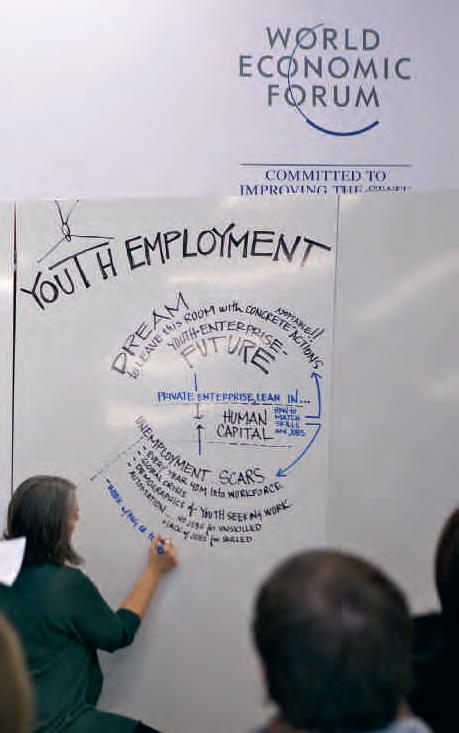 WORLD
ECONOMIC
FORUM
COMMITTED TO
IMPROVING THE STATE
YOUTH EMPLOYMENT
DREAM
to LEAVE this ROOM with CONCRETE ACTIONS
YOUTH-ENTERPRISE-
FUTURE
PRIVATE ENTERPRISE LEAN IN...
HUMAN
CAPITAL
HOW to
MATCH
SKILLS
and JOBS
UNEMPLOYMENT SCARS
- EVERY YEAR 40M INTO WORKFORCE
- GLOBAL CRISIS
- DEMOGRAPHICS & YOUTH SEEKING WORK
- AUTOMATION... NO JOBS for UNSKILLED
LACK of JOBS for SKILLED